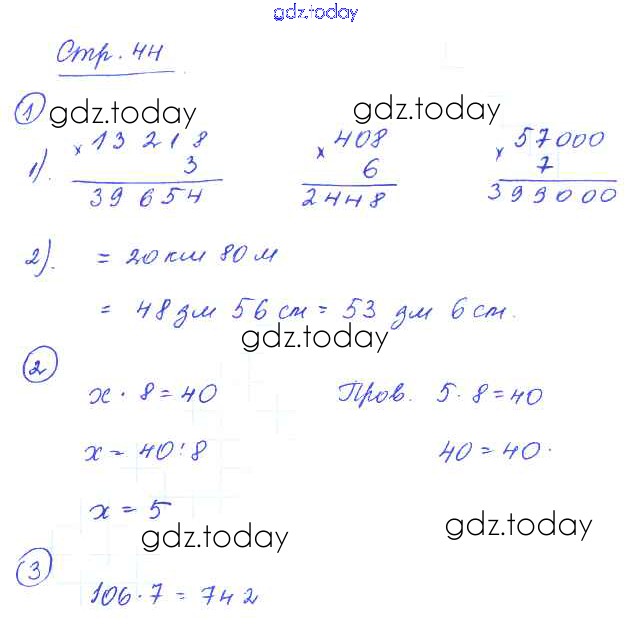 gdz.today
Стр. 44
1
gdz.today gdz.today
1). × 13 218 × 408 × 57000
3 6 7
39 654 2448 399000
2). = 20 км 80 м
= 48 дм 56 см = 53 дм 6 см.
gdz.today
2
x · 8 = 40 Пров. 5 · 8 = 40
x = 40 : 8 40 = 40.
x = 5
gdz.today gdz.today
3
106 · 7 = 742